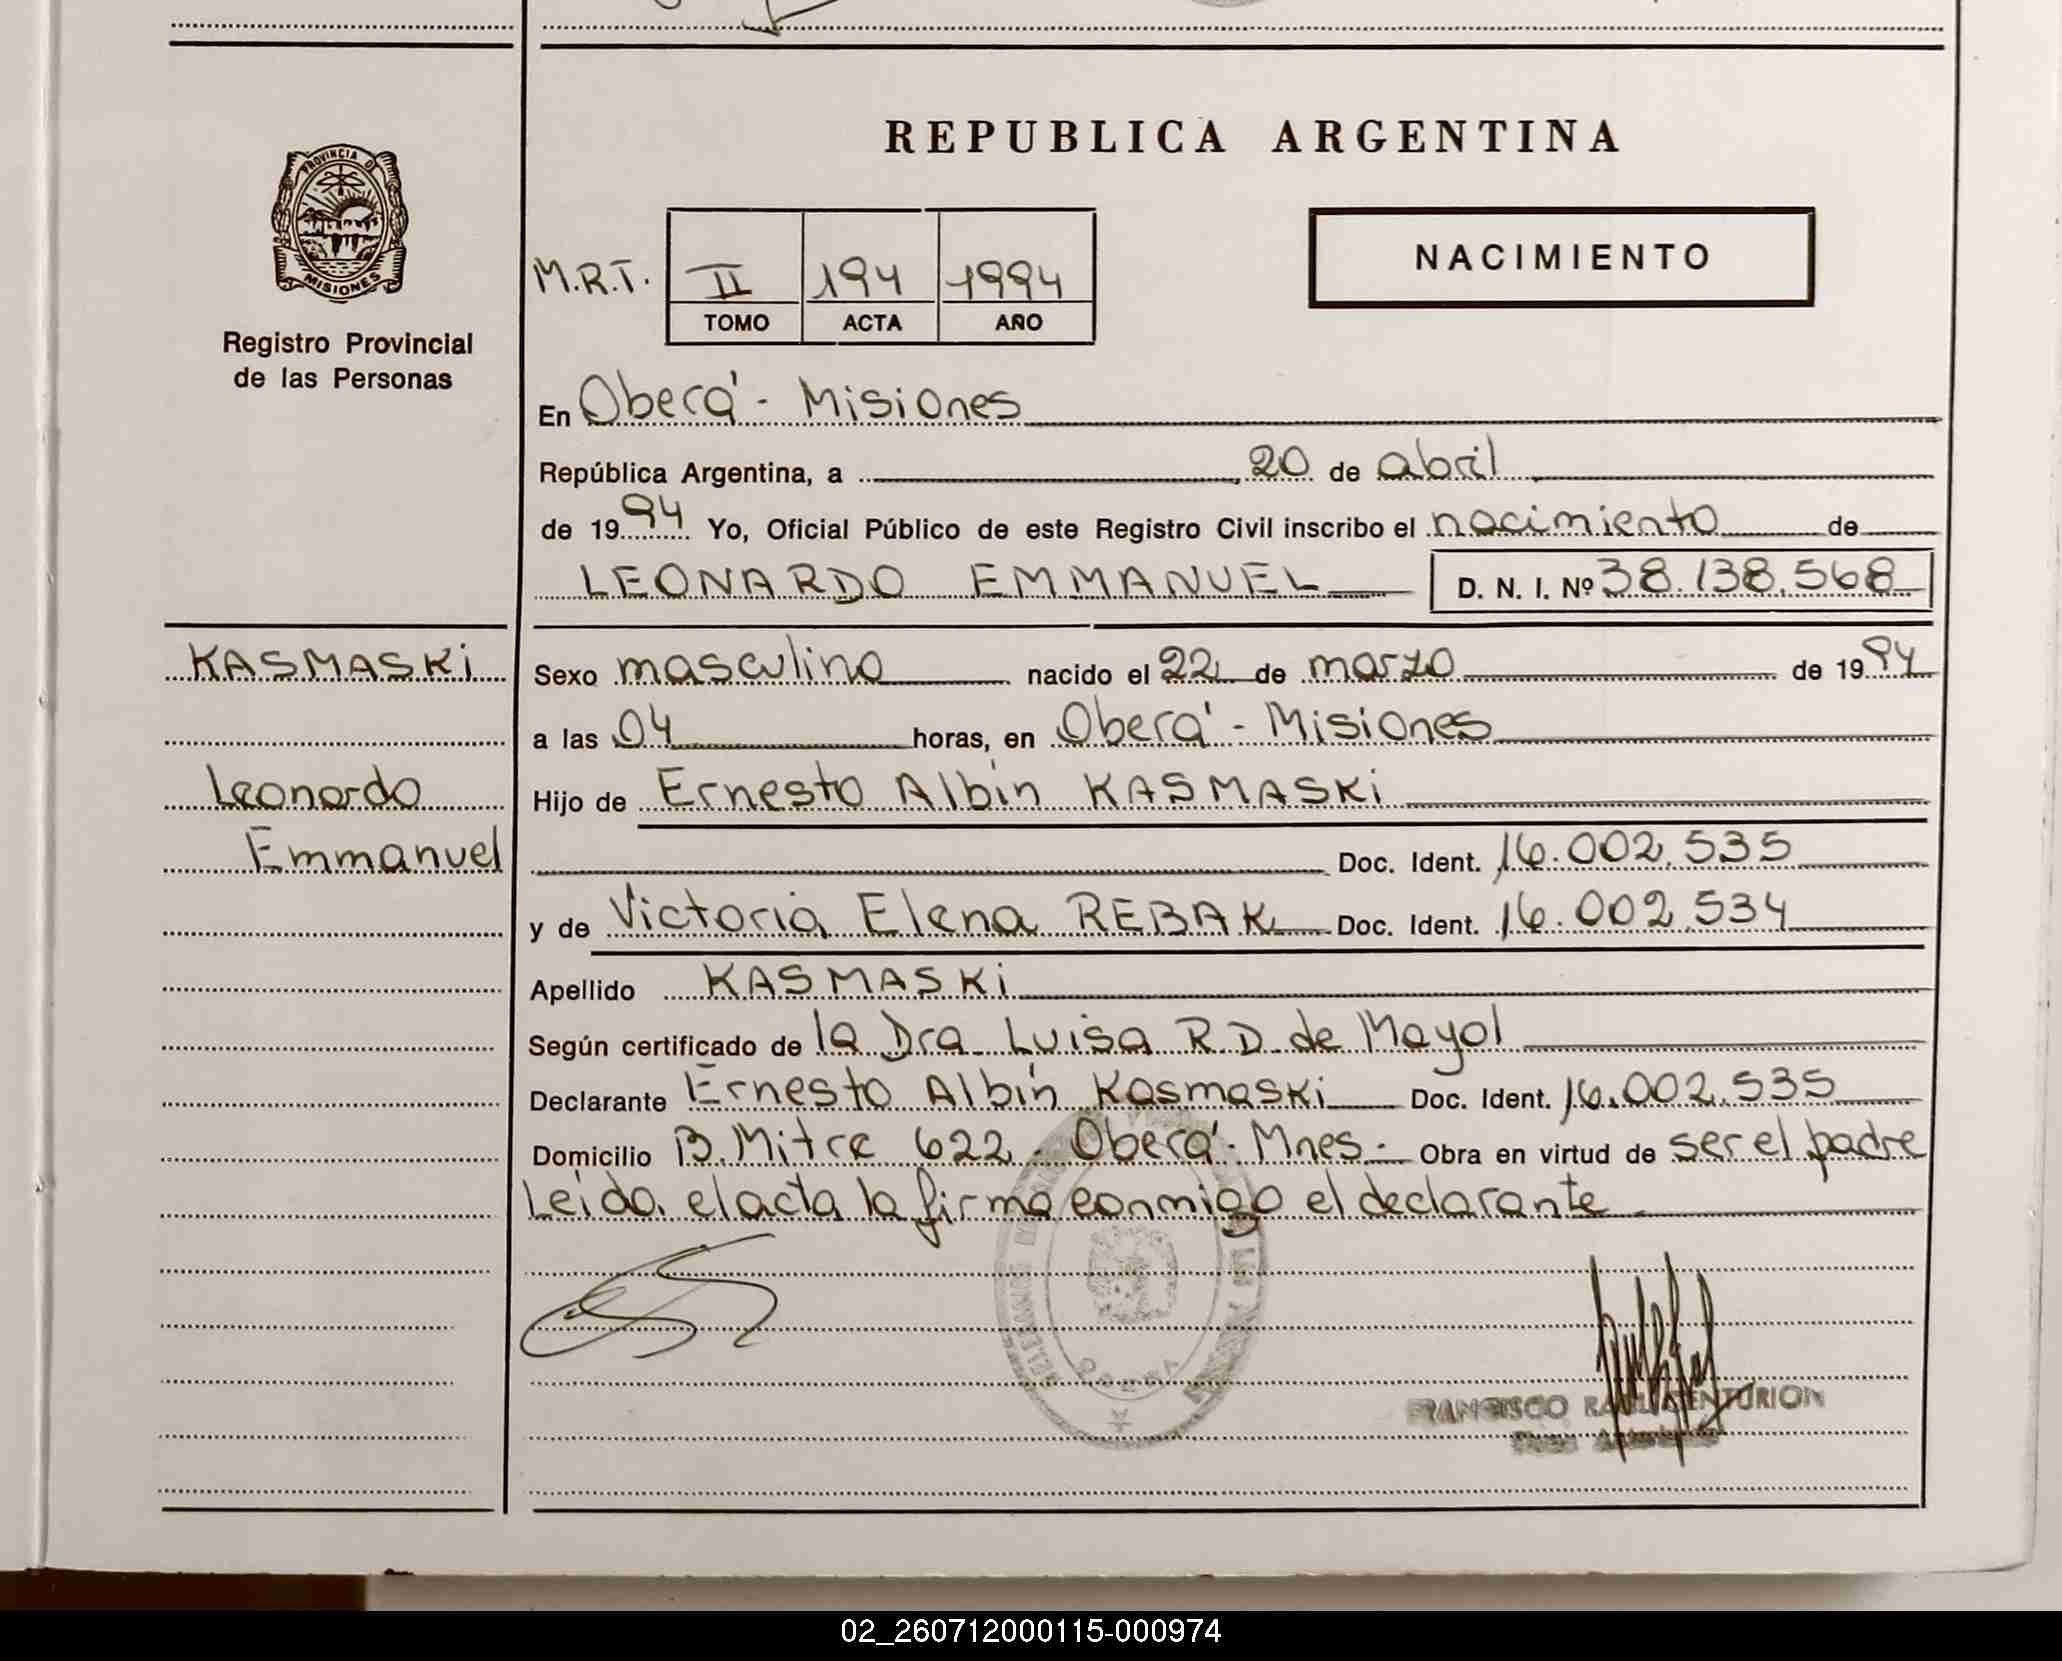 REPUBLICA ARGENTINA
PROVINCIA D
MISIONES
Registro Provincial
de las Personas
M.R.T. II 194 1994
TOMO ACTA AÑO
NACIMIENTO
En Oberá - Misiones
República Argentina, a 20 de abril
de 1994 Yo, Oficial Público de este Registro Civil inscribo el nacimiento de
LEONARDO EMMANUEL D. N. I. Nº 38.138.568
KASMASKi
Leonardo
Emmanuel
Sexo masculino nacido el 22 de marzo de 1994
a las 04 horas, en Oberá - Misiones
Hijo de Ernesto Albín KASMASKi
Doc. Ident. 16.002.535
y de Victoria Elena REBAK Doc. Ident. 16.002.534
Apellido KASMASKi
Según certificado de la Dra Luisa R.D. de Mayol
Declarante Ernesto Albín Kasmaski Doc. Ident. 16.002.535
Domicilio B. Mitre 622 - Oberá - Mnes - Obra en virtud de ser el padre
Leida el acta la firma conmigo el declarante
OBERA
FRANCISCO RAUL CENTURION
02_260712000115-000974